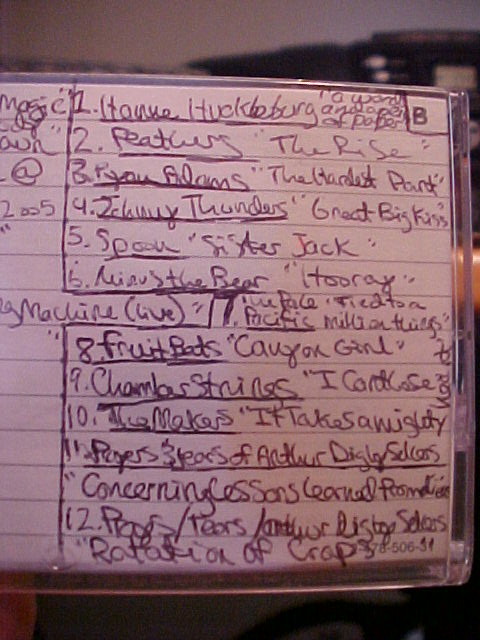 Magic" 1. Hanne Huckleburg "a word on a piece of paper" B
2. Feathers "The Rise"
@ 3. Ryan Adams "The Hardest Part"
2005 4. Johnny Thunders "Great Big Kiss"
" 5. Spoon "Sister Jack"
6. Minus the Bear "Hooray"
Machine (Live)" 7. The Pale Pacific "Tied to a million things"
" 8. Fruit Bats "Canyon Girl"
9. Chamber Strings "I Cant Lose
10. The Makers "It Takes a mighty
11. Prayers & Tears of Arthur Digby Sellers
"Concerning Lessons Learned From
12. Prayers/Tears/Arthur Digby Sellers
"Rotation of Crops" 78-506-31